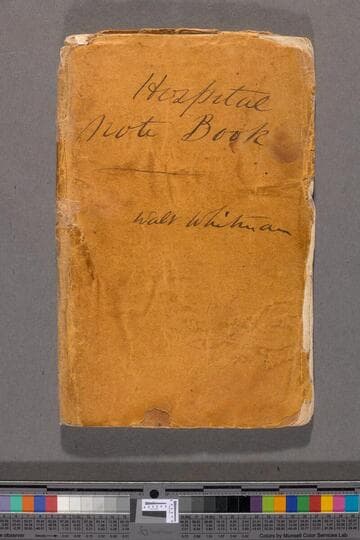 Hospital
Note Book
Walt Whitman
Colors by Munsell Color Services Lab